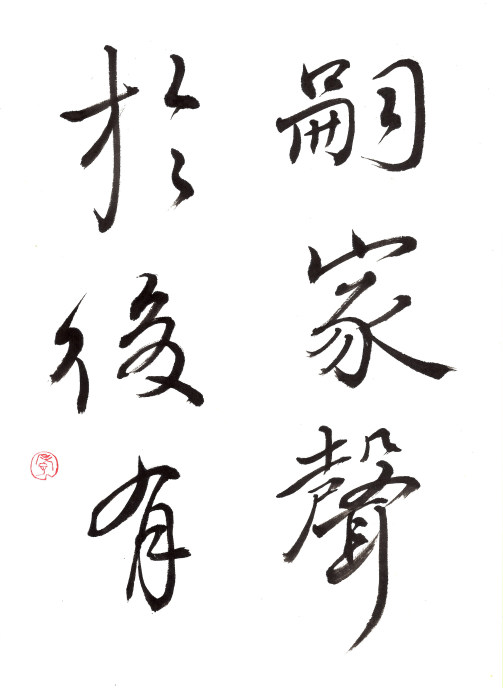 嗣家聲
於後有